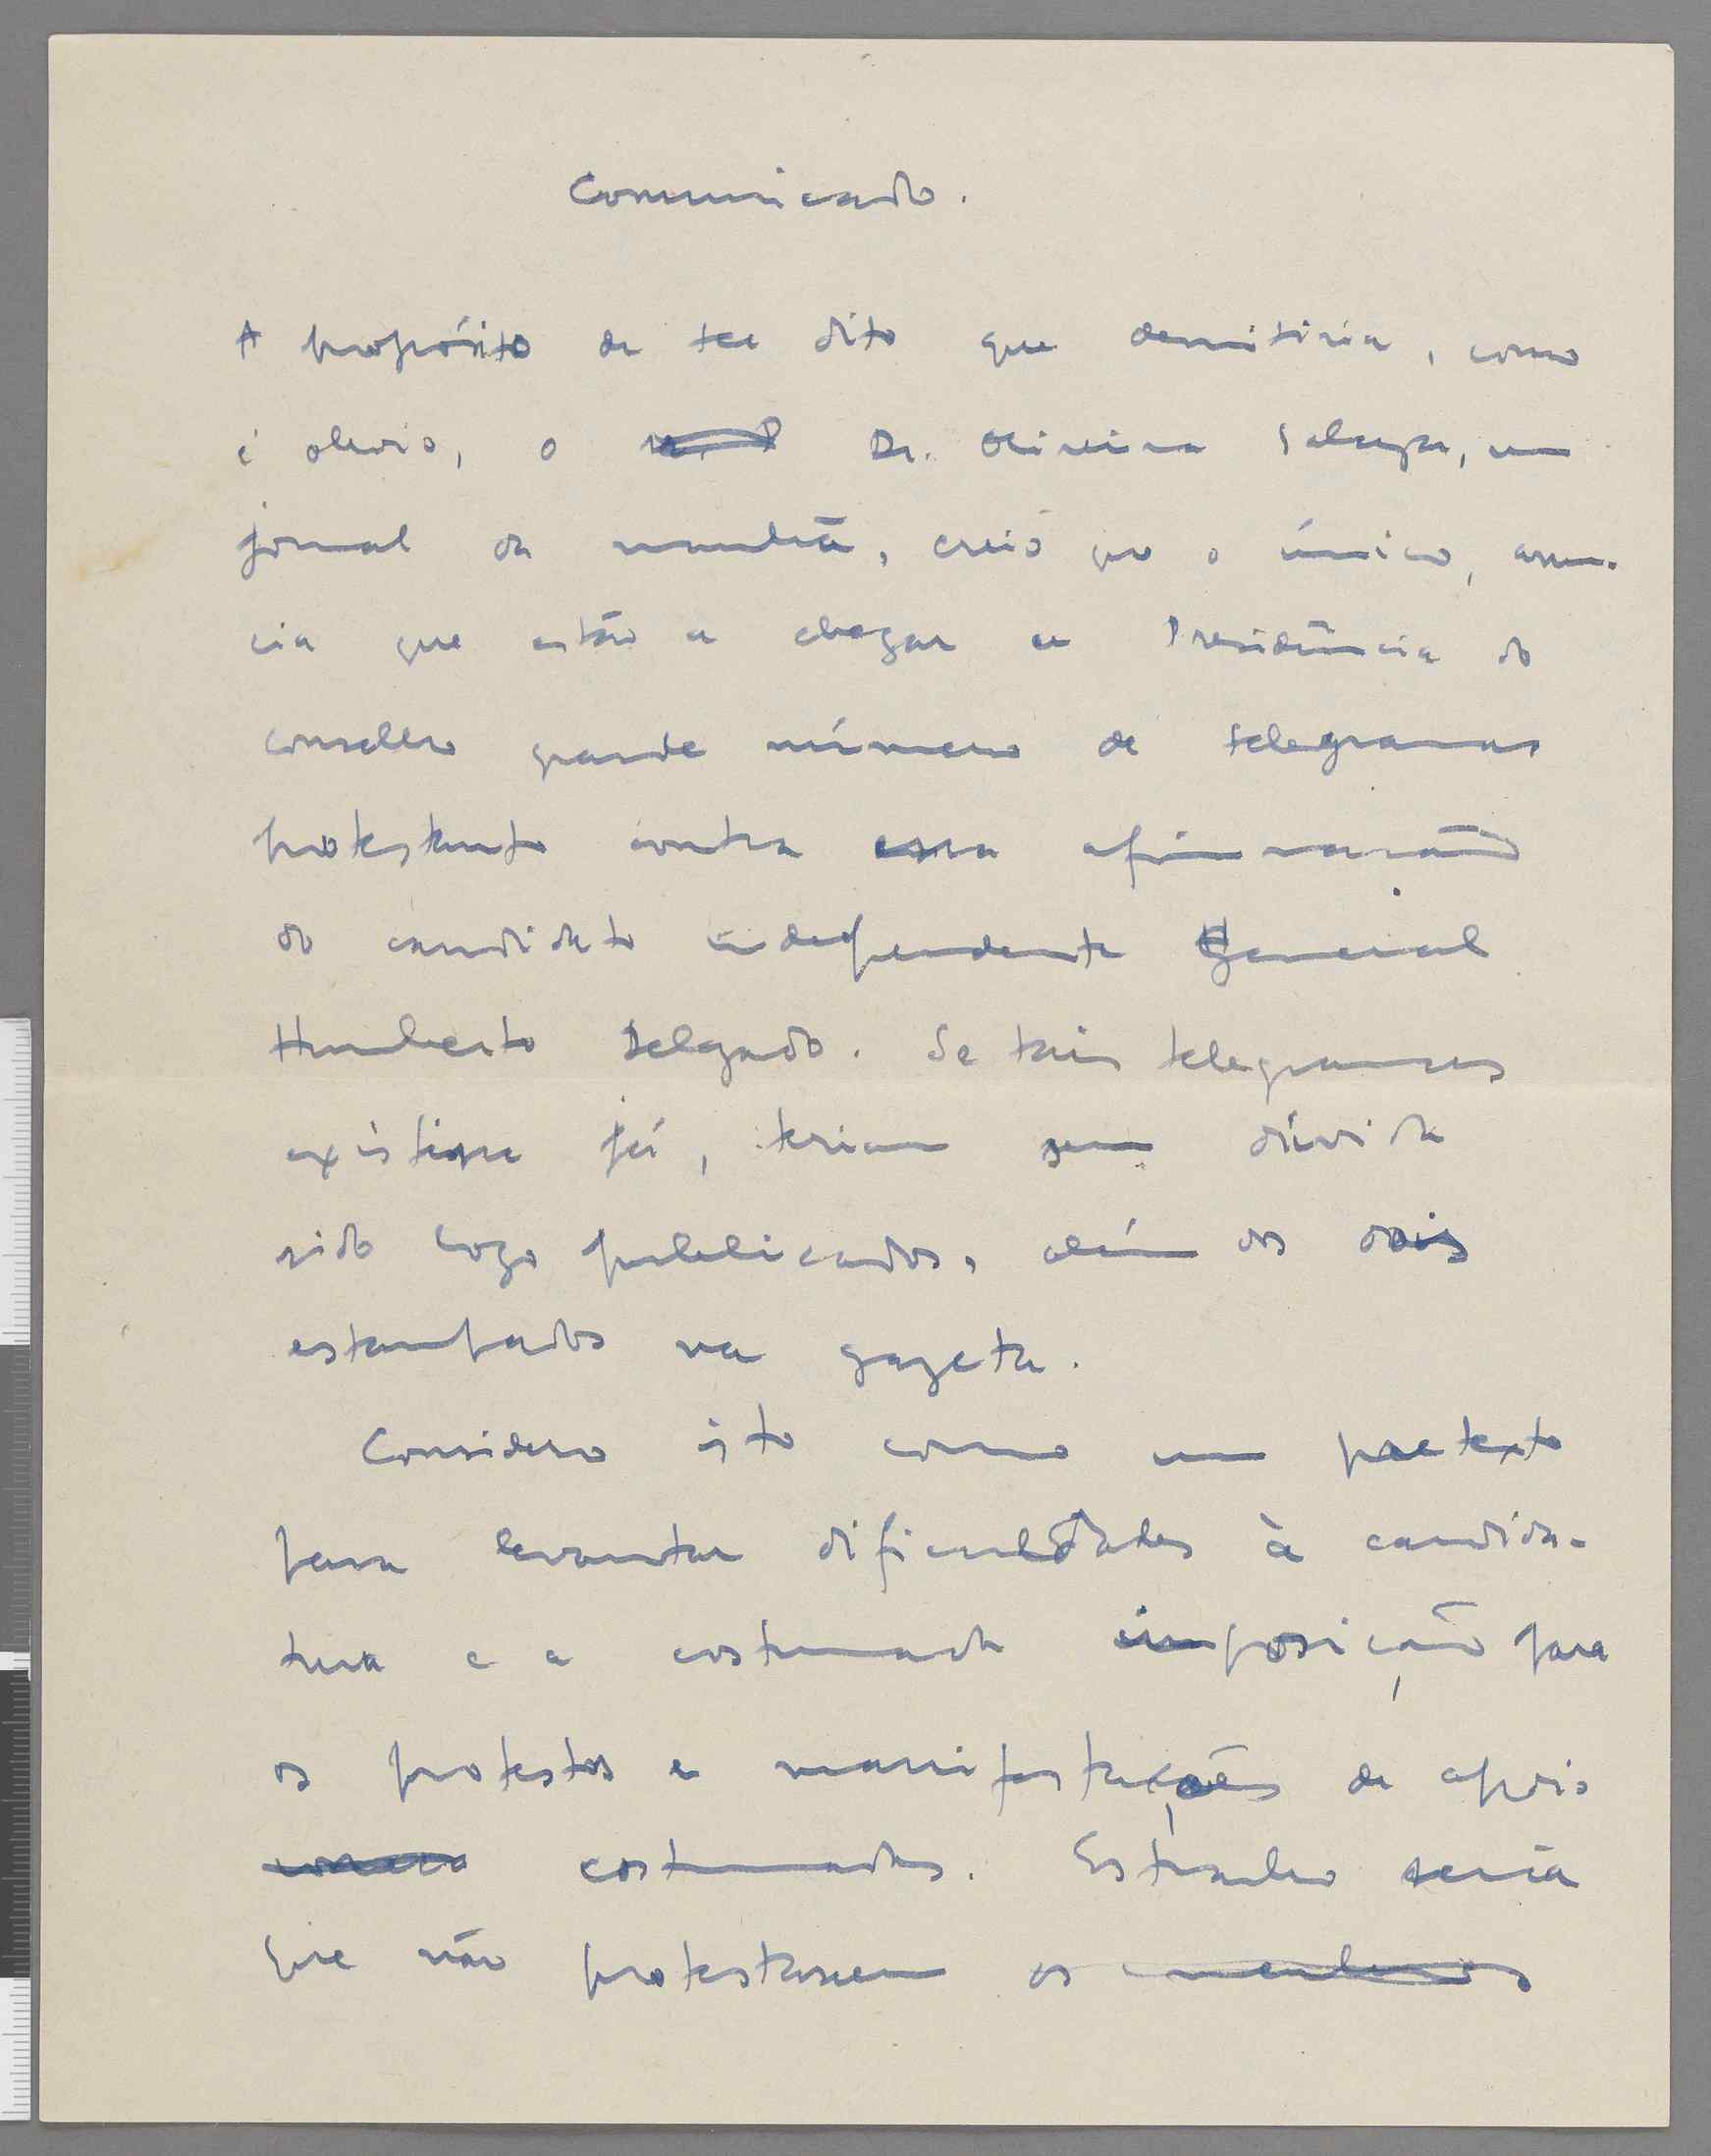 Comunicado.
A propósito de ter dito que demitiria, como
é obvio, o Dr. Oliveira Salazar, um
jornal da manhã, creio que o único, anun-
cia que estão a chegar a Presidência do
conselho grande número de telegramas
protestando contra essa afirmação
do candidato independente General
Humberto Delgado. Se tais telegramas
já, teriam sem dúvida
sido logo publicados, além dos dois
estampados na gazeta.
Considero isto como um pretexto
para levantar dificuldades à candida-
tura e a costumada imposição para
os protestos e manifestações de apoio
costumadas. Estranho seria
que não protestassem os membros